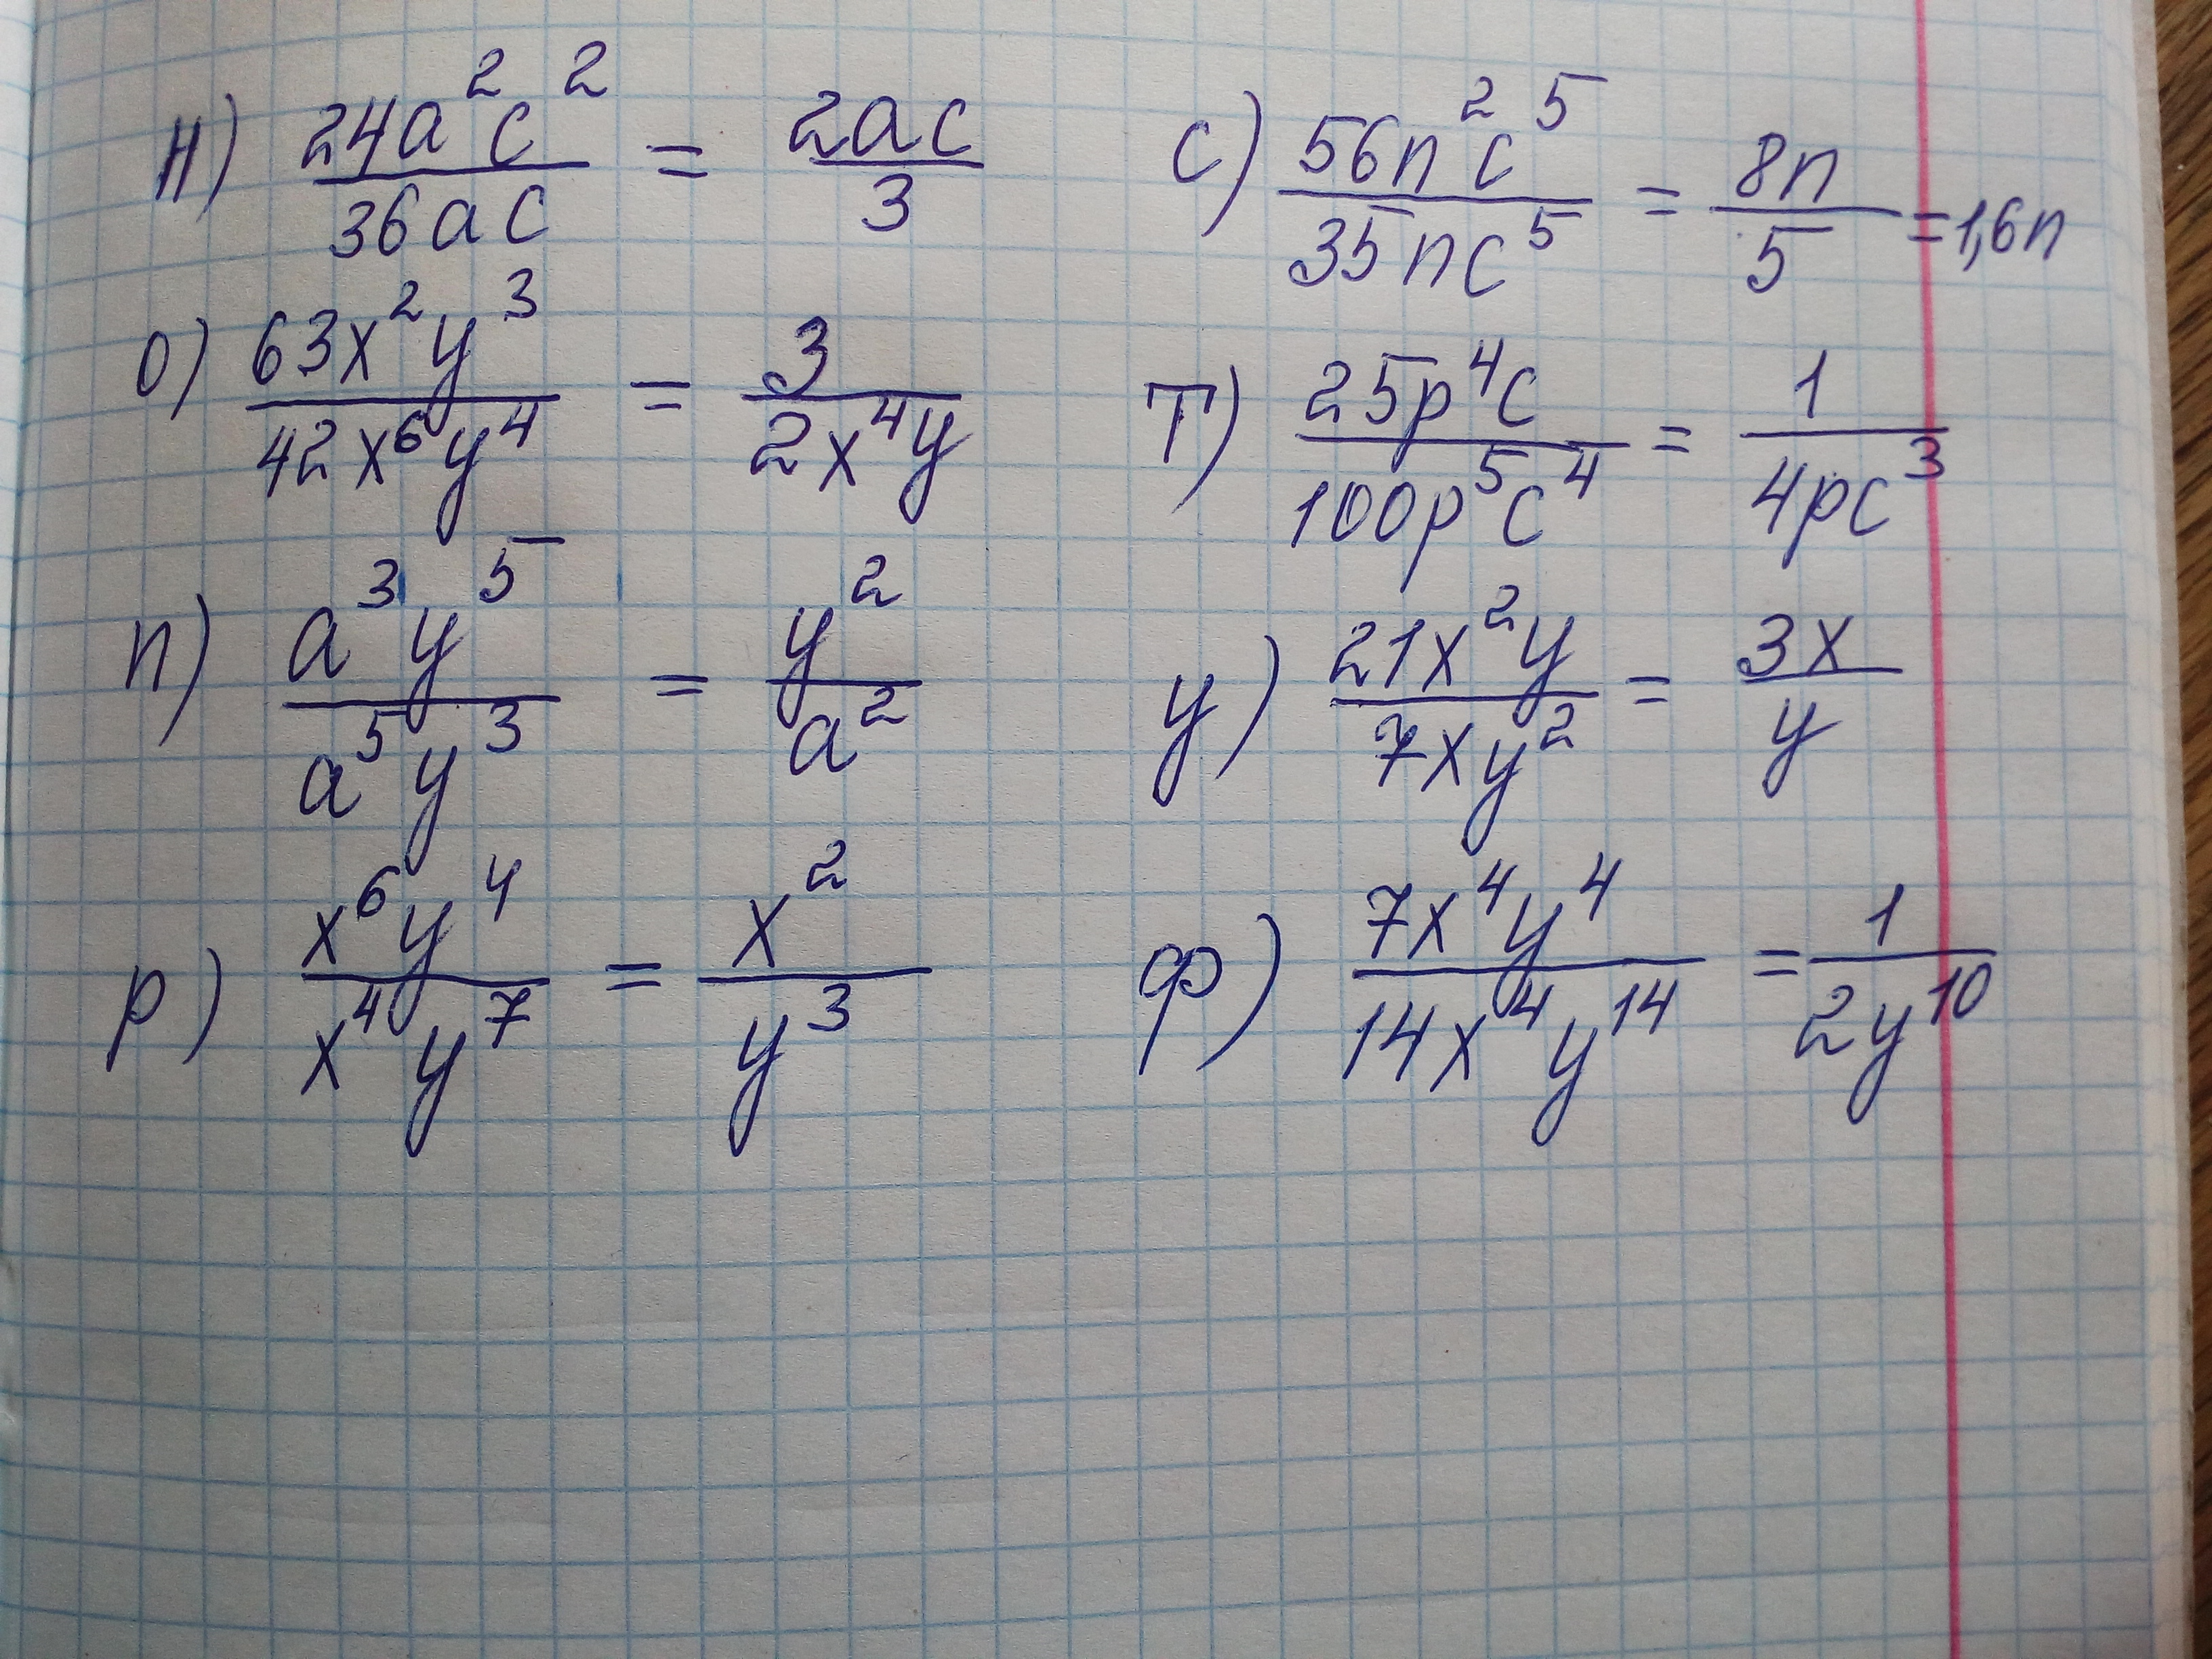 н) 24a²c²/36ac = 2ac/3
о) 63x²y³/42x⁶y⁴ = 3/2x⁴y
п) a³y⁵/a⁵y³ = y²/a²
р) x⁶y⁴/x⁴y⁷ = x²/y³
с) 56n²c⁵/35nc⁵ = 8n/5 = 1,6n
т) 25p⁴c/100p⁵c⁴ = 1/4pc³
у) 21x²y/7xy² = 3x/y
ф) 7x⁴y⁴/14x⁴y¹⁴ = 1/2y¹⁰